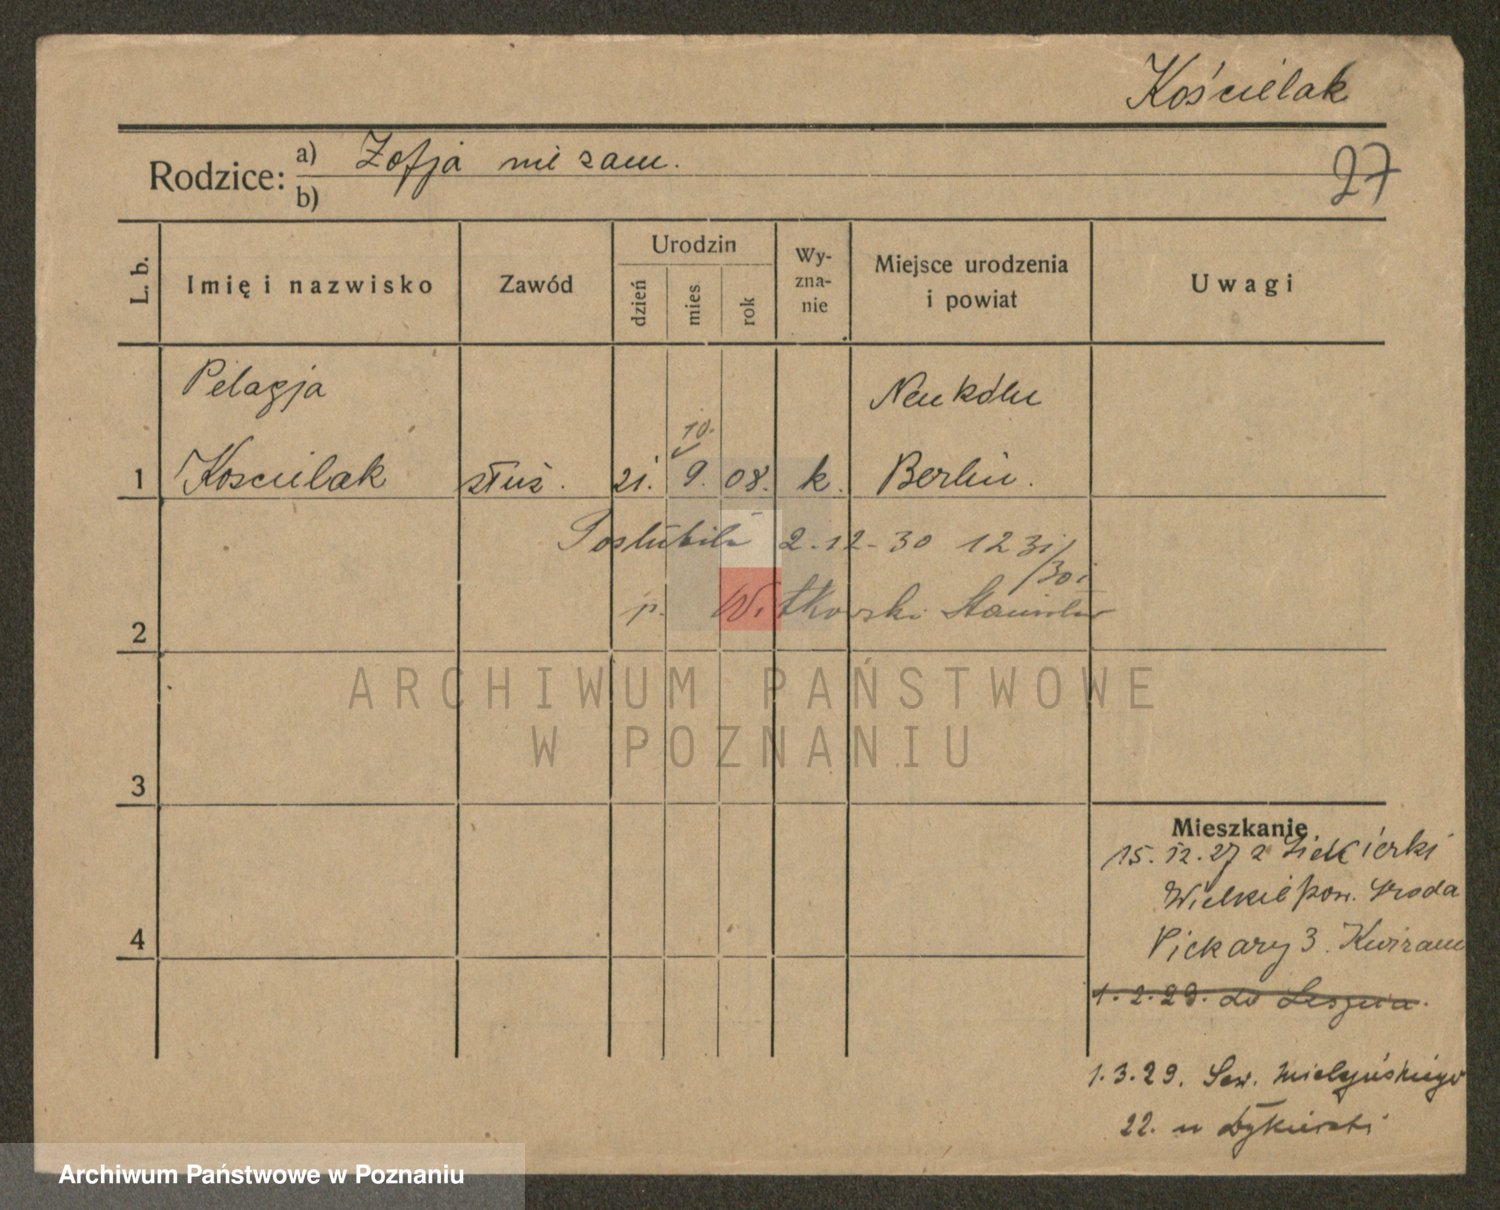 Kościelak
Rodzice: a) Zofja nie zam.
b)
27
L. b.
Imię i nazwisko
Zawód
Urodzin
dzień
mies
rok
Wy-
zna-
nie
Miejsce urodzenia
i powiat
Uwagi
Pelagja
Neukölln
10.
1 Koscielak służ. 21. 9. 08. k. Berlin.
Poślubiła 2-12-30 1231/301
p. Witkowski Stanisław
2
ARCHIWUM PAŃSTWOWE
W POZNANIU
3
Mieszkanie
15. 12. 27 z Siekierki
Wielkie pow. Sroda
4
Piekary 3.
1. 2. 29. do Leszna.
1. 3. 29. Sew. Mielżyńskiego
22. u
Archiwum Państwowe w Poznaniu